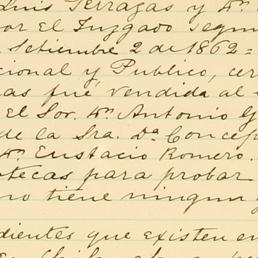 Luis Terrazas y Dn.
por el Juzgado Segun
Setiembre 2 de 1862=
cional y Publico, cer
as fué vendida al
El Sor. Dn. Antonio G
de la Sra. Da. Concep
Dn. Eustacio Romero.
otecas para probar
no tiene ningun g
dientes que existen en